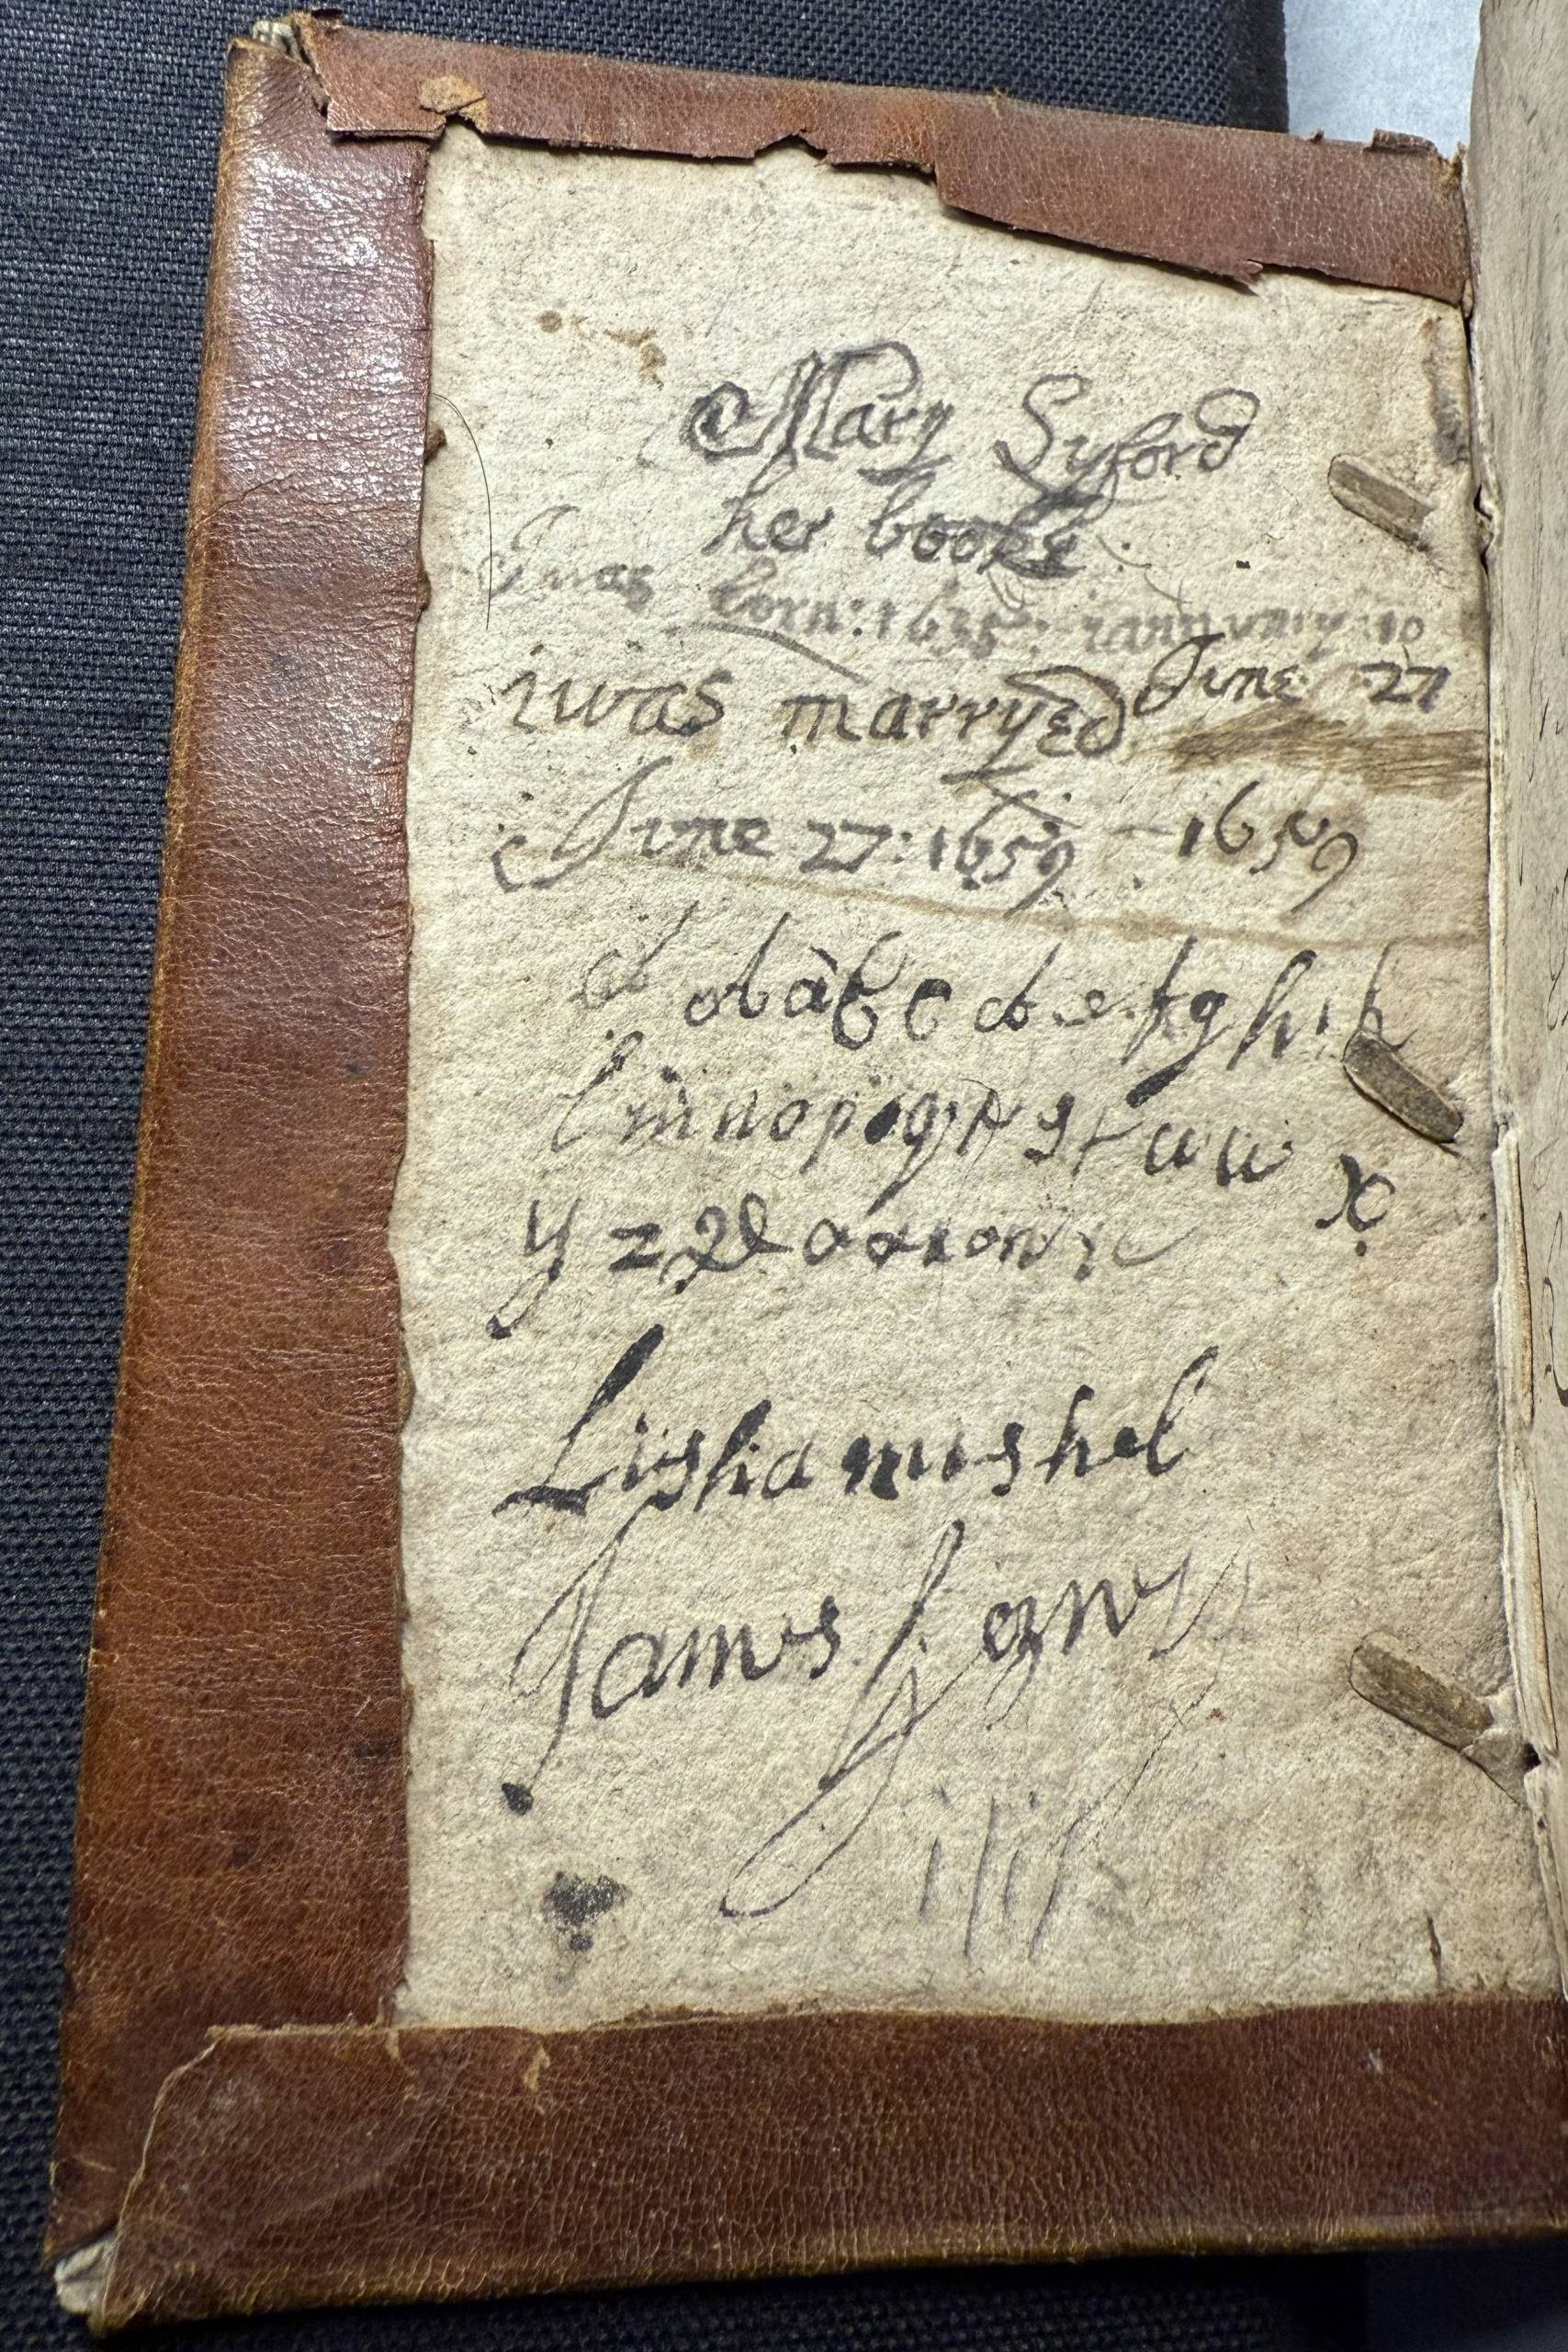 Mary Syford
her booke
I was born: 1635: iannuary: 10
i was marryed June 27
June 27: 1659 - 1659
d ab a b c d e f g h i k
l m n o p q r s t u w x
y z & a
Lisha mishel
James